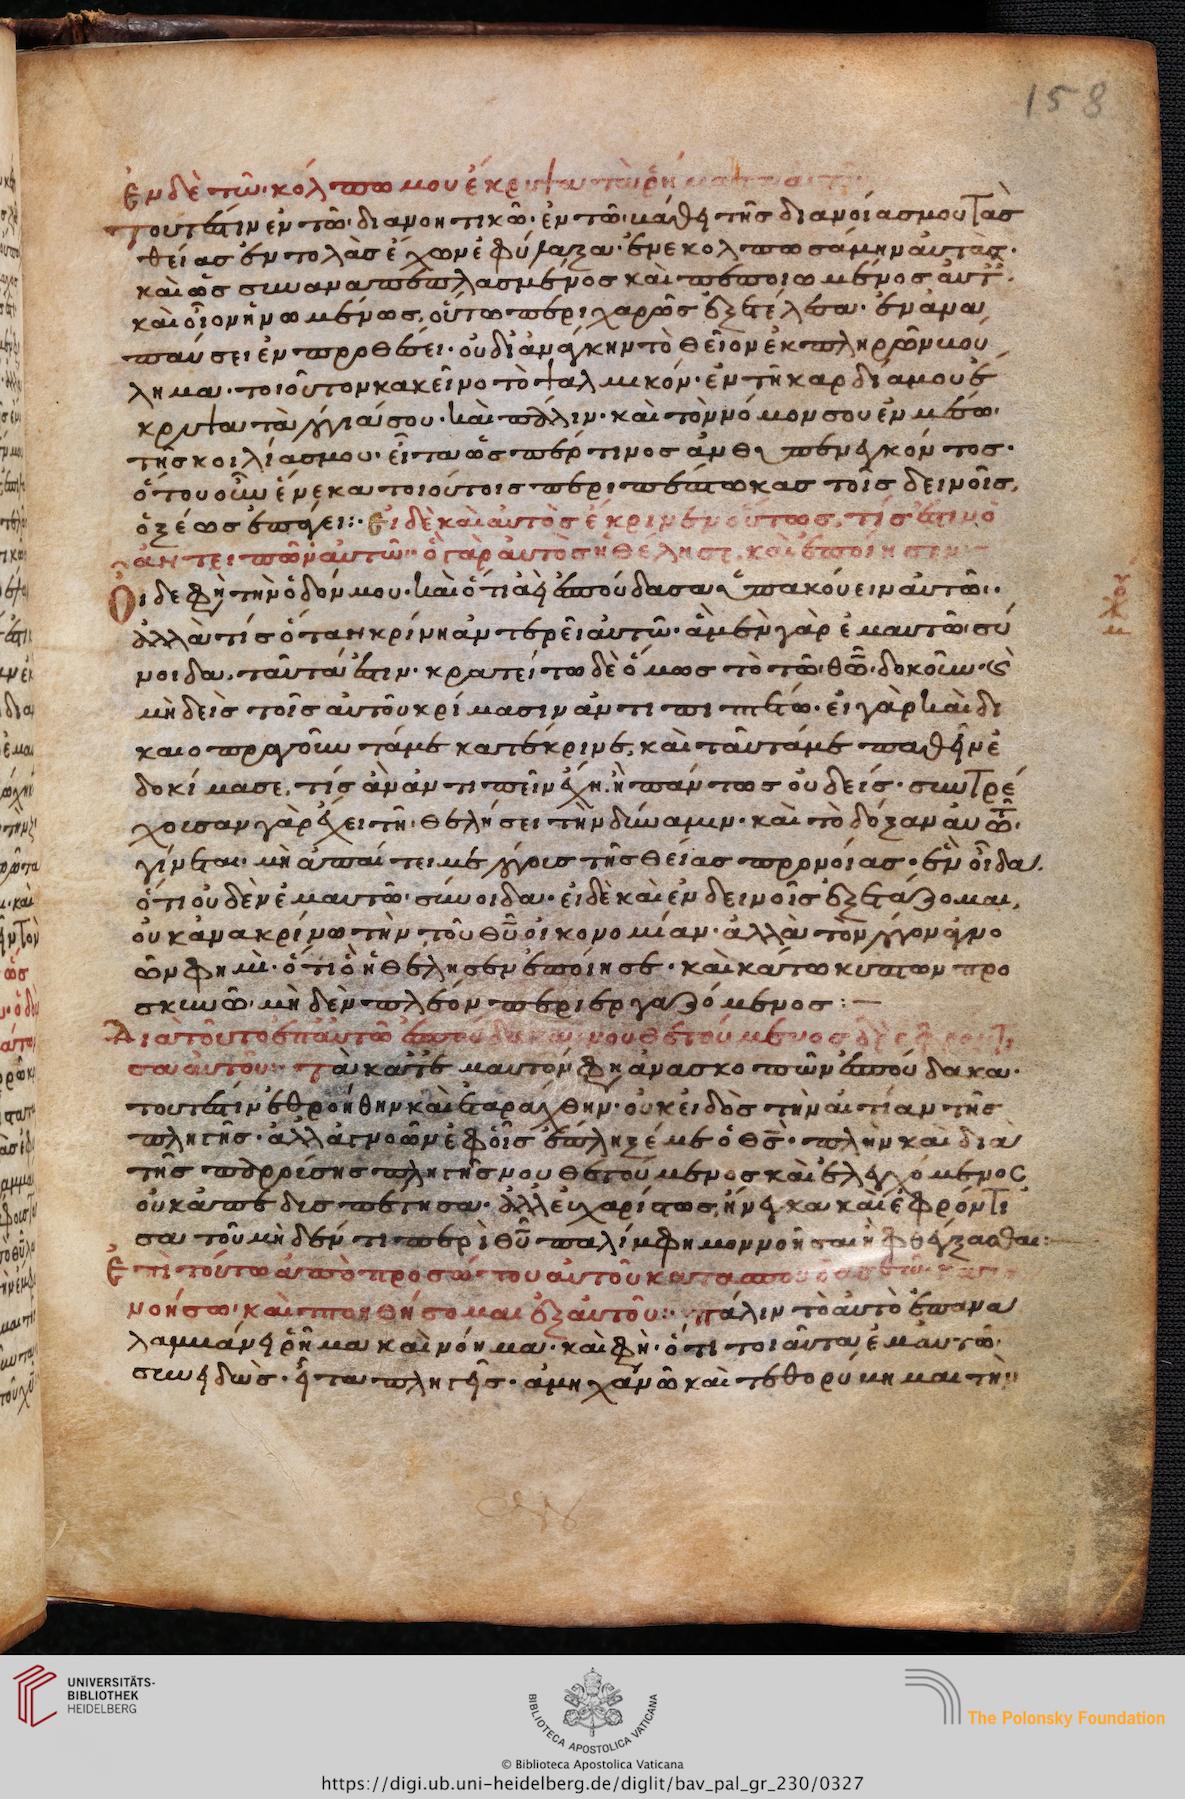 158
Ἐν δὲ τῷ κόλπῳ μου ἔκρυψα τὰ ῥήματα αὐτοῦ
τουτέστιν ἐν τῷ διανοητικῷ· ἐν τῷ βάθει τῆς διανοίας μου τὰς
θείας ἐντολὰς ἔχων ἐφύλαξα· ἐνεκολπωσάμην αὐτὰς·
καὶ ὡς συναναπεπλασμένος καὶ πεποιωμένος αὐτ
καὶ οἷον ἡνωμένως, οὕτω περιχαρῶς ἐξετέλεσα· ἐν ἀνα
παύσει ἐν προθέσει· οὐ δι' ἀνάγκην τὸ θεῖον ἐκπληρῶν βού
λημα· τοιοῦτον κἀκεῖνο τὸ ψαλμικόν· ἐν τῇ καρδίᾳ μου ἔ
κρυψα τὰ λόγιά σου· καὶ πάλιν· καὶ τὸν νόμον σου ἐν μέσῳ
τῆς κοιλίας μου· εἶτα ὥσπερ τινος ἀνθυπενεγκόντος·
ὅτου οὖν ἕνεκα τοιούτοις περιπέπτωκας τοῖς δεινοῖς,
ὀξέως ἐπάγει: Εἰ δὲ καὶ αὐτὸς ἔκρινεν οὕτως, τίς ἐστιν ὁ
ἀντειπὼν αὐτῷ· ὃ γὰρ αὐτὸς ἠθέλησε, καὶ ἐποίησεν
Οἶδε φη τὴν ὁδόν μου· καὶ ὅτι ἀεὶ ἐσπούδασα ὑπακούειν αὐτῷ··
ἀλλὰ τίς ὅταν κρίνῃ ἀντερεῖ αὐτῷ· ἃ μὲν γὰρ ἐμαυτῷ σύ
νοιδα, ταῦτά ἐστιν· κρατείτω δὲ ὅμως τὸ τῷ θῶ δοκοῦν· καὶ
μηδεὶς τοῖς αὐτοῦ κρίμασιν ἀντιπιπτέτω· εἰ γὰρ καὶ δί
καιο πραγοῦντά με κατέκρινε, καὶ ταῦτά με παθεῖν ἐ
δοκίμασε, τίς ἂν ἀντιπεῖν ἔχῃ ἢ πάντως οὐδείς· συντρέ
χουσαν γὰρ ἔχει τῇ θελήσει τὴν δύναμιν· καὶ τὸ δόξαν αὐτῷ
γίνεται· μὴ ἀπαίτει με λόγους τῆς θείας προνοίας· ἓν οἶδα,
ὅτι οὐδὲν ἐμαυτῷ σύνοιδα· εἰ δὲ καὶ ἐν δεινοῖς ἐξετάζομαι,
οὐκ ἀνακρίνω τὴν τοῦ θῦ οἰκονομίαν· ἀλλὰ τὸν λόγον ἀγνο
ῶν φημὶ· ὅτι ὃ ἠθέλησεν ἐποίησε· καὶ κάτω κύπτων προ
σκυνῶ· μηδὲν πλέον περιεργαζόμενος: —
Διὰ τοῦτο ἐπ' αὐτῷ ἐσπούδακα· νουθετούμενος δὲ ἐφρόντι
σα αὐτοῦ: τὰ κατ' ἐμαυτόν φη ἀνασκοπῶν ἐσπούδακα·
τουτέστιν ἐθροήθην καὶ ἐταράχθην· οὐκ εἰδὼς τὴν αἰτίαν τῆς
πληγῆς· ἀλλ' ἀγνοῶν ἐφ' οἷς ἔπληξέ με ὁ θς· πλὴν καὶ διὰ
τῆς παρούσης πληγῆς μου θετούμενος καὶ ἐλεγχόμενος
οὐκ ἀπεδυσπέτησα· ἀλλ' εὐχαρίστως ἤνεγκα καὶ ἐφρόντι
σα τοῦ μηδέν τι περὶ θῦ παλίμφημον νοῆσαι ἢ φθέγξασθαι: —
Ἐπὶ τούτῳ ἀπὸ προσώπου αὐτοῦ κατασπουδασθῶ· κατα
νοήσω· καὶ πτοηθήσομαι ἐξ αὐτοῦ: πάλιν τὸ αὐτὸ ἐπανα
λαμβάνει ῥῆμα καὶ νόημα· καὶ φη· ὅτι τοιαῦτα ἐμαυτῷ
συνειδὼς· εἶτα πληγεὶς· ἀμηχανῶ καὶ τεθορύβημαι τὴν
© Biblioteca Apostolica Vaticana
https://digi.ub.uni-heidelberg.de/diglit/bav_pal_gr_230/0327
UNIVERSITÄTS-
BIBLIOTHEK
HEIDELBERG
BIBLIOTECA APOSTOLICA VATICANA
The Polonsky Foundation